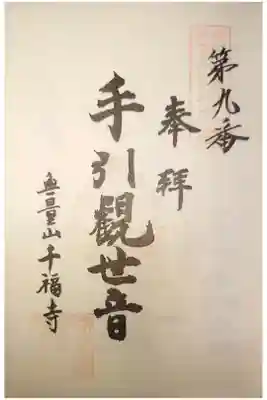 第九番
奉拜
手引觀世音
無量山千福寺